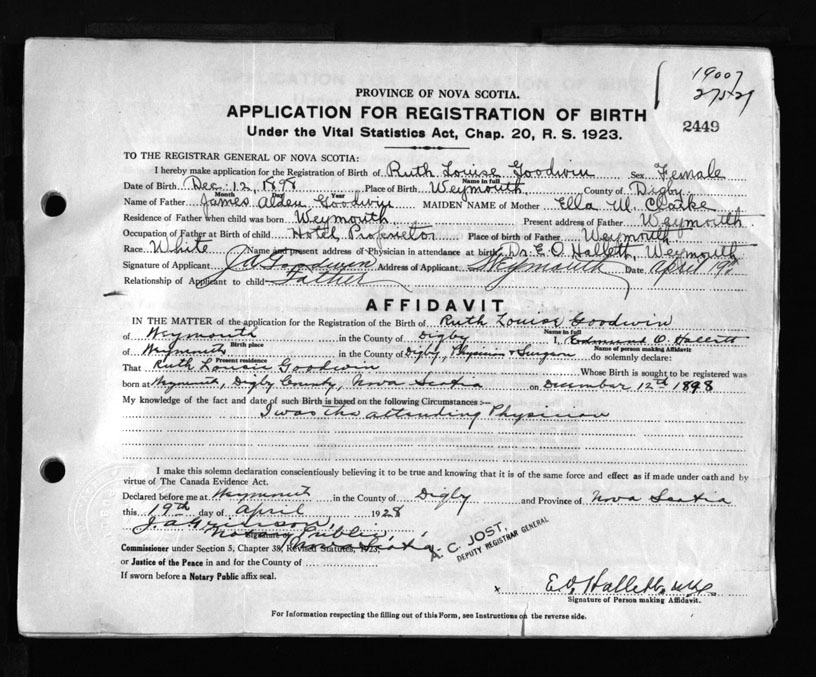 19007
27529
2449
PROVINCE OF NOVA SCOTIA.
APPLICATION FOR REGISTRATION OF BIRTH
Under the Vital Statistics Act, Chap. 20, R. S. 1923.
TO THE REGISTRAR GENERAL OF NOVA SCOTIA:
I hereby make application for the Registration of Birth of Ruth Louise Goodwin Sex Female
Name in full
Date of Birth Dec. 12, 1898 Place of Birth Weymouth County of Digby
Month Day Year
Name of Father James Alden Goodwin MAIDEN NAME of Mother Ella M. Clarke
Residence of Father when child was born Weymouth Present address of Father Weymouth
Occupation of Father at Birth of child Hotel Proprietor Place of birth of Father Weymouth
Race White Name and present address of Physician in attendance at birth Dr. E. O. Hallett, Weymouth
Signature of Applicant J A Goodwin Address of Applicant Weymouth Date April 19
Relationship of Applicant to child Father
AFFIDAVIT
IN THE MATTER of the application for the Registration of the Birth of Ruth Louise Goodwin
Name in full
of Weymouth in the County of Digby I, Edmund O. Hallett
Birth place Name of person making Affidavit
of Weymouth in the County of Digby, Physician & Surgeon do solemnly declare:
Present residence
That Ruth Louise Goodwin Whose Birth is sought to be registered was
born at Weymouth, Digby County, Nova Scotia on December 12th 1898
My knowledge of the fact and date of such Birth is based on the following Circumstances :—
I was the attending Physician
I make this solemn declaration conscientiously believing it to be true and knowing that it is of the same force and effect as if made under oath and by
virtue of The Canada Evidence Act.
Declared before me at Weymouth in the County of Digby and Province of Nova Scotia
this 19th day of April 1928
J. A. Grierson,
Notary Public,
Signature of
Nova Scotia
Commissioner under Section 5, Chapter 38, Revised Statutes, 1923.
A. C. JOST,
DEPUTY REGISTRAR GENERAL
or Justice of the Peace in and for the County of
If sworn before a Notary Public affix seal.
x E. O. Hallett, M.D.
Signature of Person making Affidavit.
For Information respecting the filling out of this Form, see Instructions on the reverse side.